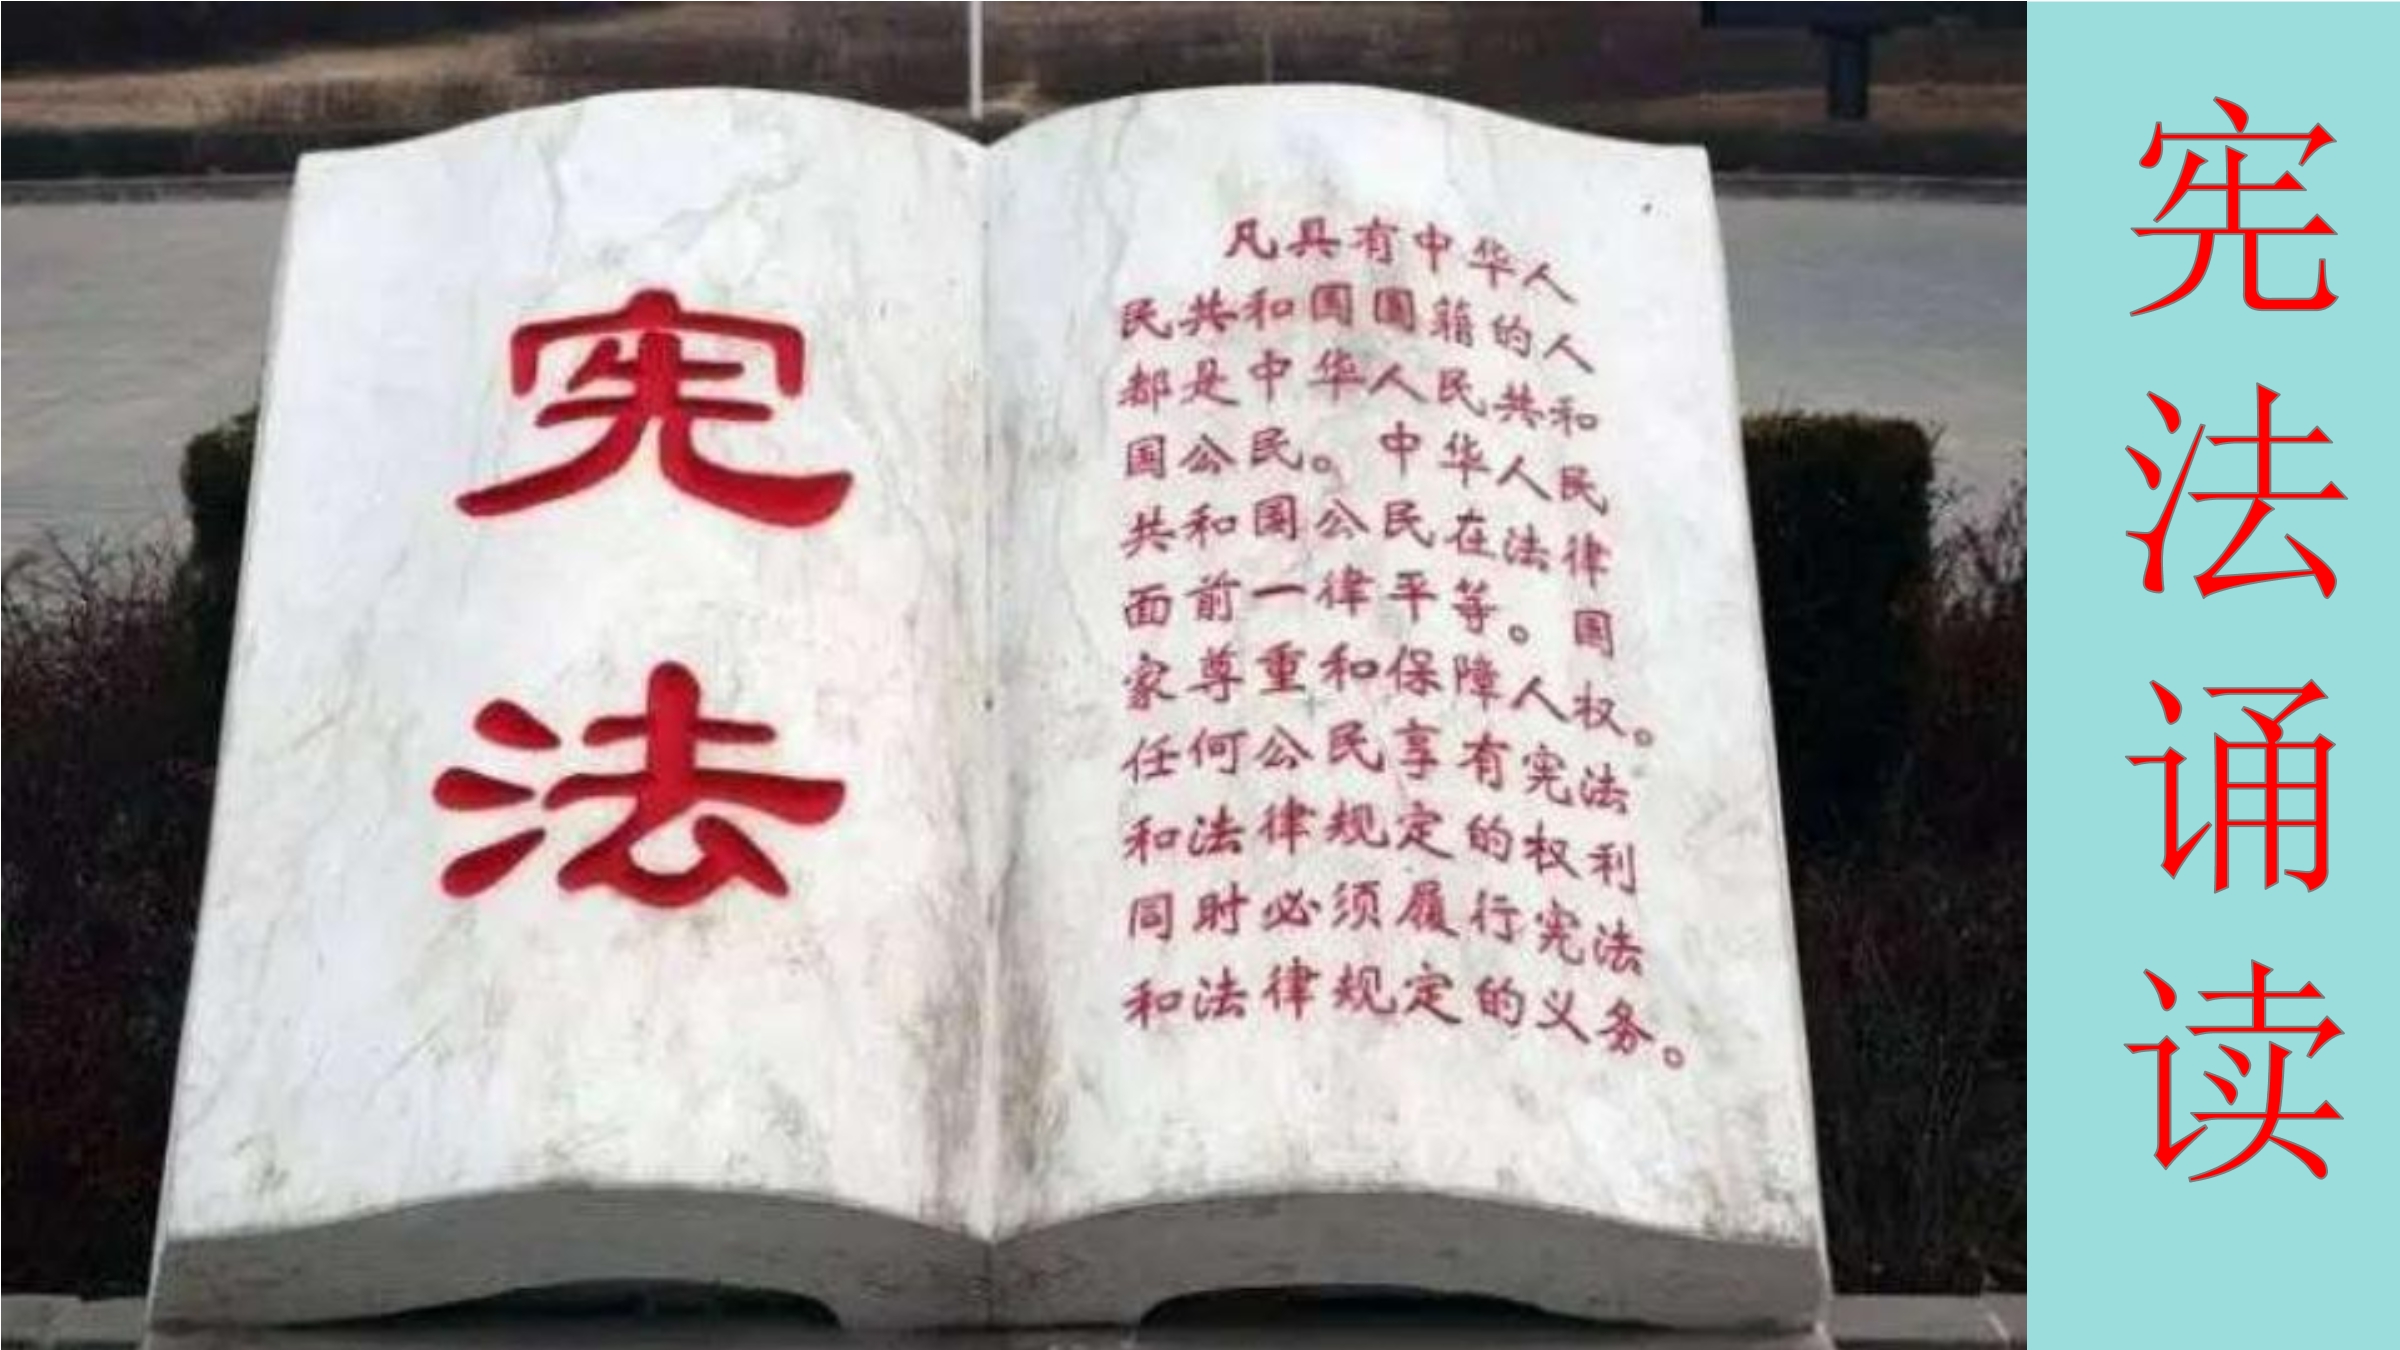 宪
法
凡具有中华人
民共和国国籍的人
都是中华人民共和
国公民。中华人民
共和国公民在法律
面前一律平等。国
家尊重和保障人权。
任何公民享有宪法
和法律规定的权利
同时必须履行宪法
和法律规定的义务。
宪法诵读